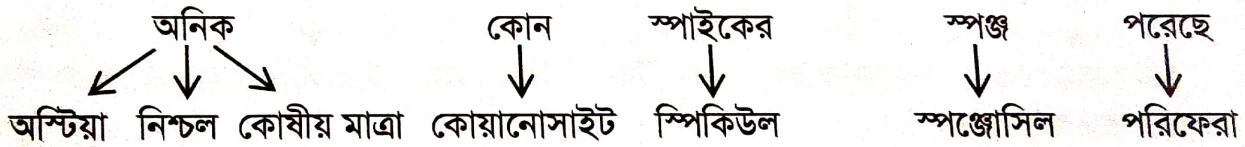 অনিক কোন স্পাইকের স্পঞ্জ পরেছে
অস্টিয়া নিশ্চল কোষীয় মাত্রা কোয়ানোসাইট স্পিকিউল স্পঞ্জোসিল পরিফেরা